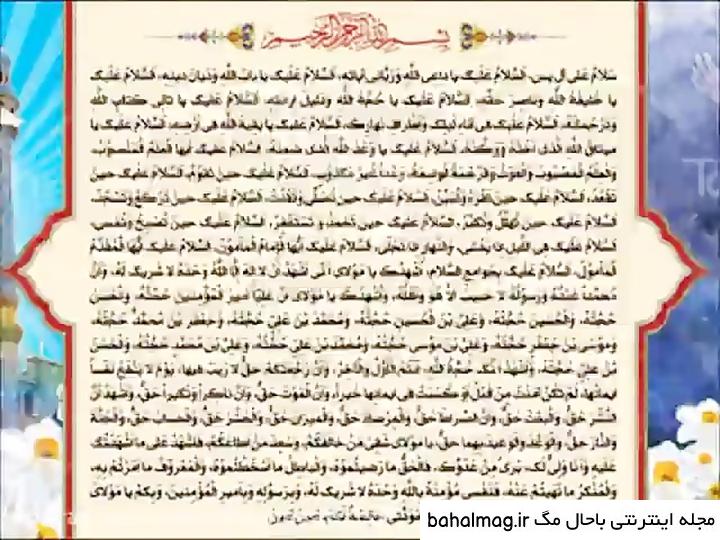 بسم الله الرحمن الرحیم
سلام علی آل یس، السلام علیک یا داعی الله وربانی آیاته، السلام علیک یا باب الله ودیان دینه، السلام علیک
یا خلیفة الله وناصر حقه، السلام علیک یا حجة الله ودلیل ارادته، السلام علیک یا تالی کتاب الله
وترجمانه، السلام علیک فی آناء لیلک واطراف نهارک، السلام علیک یا بقیة الله فی ارضه، السلام علیک یا
میثاق الله الذی اخذه ووکده، السلام علیک یا وعد الله الذی ضمنه، السلام علیک ایها العلم المنصوب،
والعلم المصبوب والغوث والرحمة الواسعة، وعدا غیر مکذوب، السلام علیک حین تقوم، السلام علیک حین
تقعد، السلام علیک حین تقرء وتبین، السلام علیک حین تصلی وتقنت، السلام علیک حین ترکع وتسجد،
السلام علیک حین تهلل وتکبر، السلام علیک حین تحمد وتستغفر، السلام علیک حین تصبح وتمسی،
السلام علیک فی اللیل اذا یغشی، والنهار اذا تجلی، السلام علیک ایها الامام المأمون، السلام علیک ایها المقدم
المأمول، السلام علیک بجوامع السلام، اشهدک یا مولای انی اشهد ان لا اله الا الله وحده لا شریک له، وان
محمدا عبده ورسوله لا حبیب الا هو واهله، واشهدک یا مولای ان علیا امیر المؤمنین حجته، والحسن
حجته، والحسین حجته، وعلی بن الحسین حجته، ومحمد بن علی حجته، وجعفر بن محمد حجته،
وموسی بن جعفر حجته، وعلی بن موسی حجته، ومحمد بن علی حجته، وعلی بن محمد حجته، والحسن
بن علی حجته، واشهد انک حجة الله، انتم الاول والآخر، وان رجعتکم حق لا ریب فیها، یوم لا ینفع نفسا
ایمانها لم تکن آمنت من قبل او کسبت فی ایمانها خیرا، وان الموت حق، وان ناکرا ونکیرا حق، واشهد ان
النشر حق، والبعث حق، وان الصراط حق، والمرصاد حق، والمیزان حق، والحشر حق، والحساب حق، والجنة
والنار حق، والوعد والوعید بهما حق، یا مولای شقی من خالفکم، وسعد من اطاعکم، فاشهد علی ما اشهدتک
علیه وانا ولی لک، بریء من عدوک، فالحق ما رضیتموه، والباطل ما اسخطتموه، والمعروف ما امرتم به،
والمنکر ما نهیتم عنه، فنفسی مؤمنة بالله وحده لا شریک له، وبرسوله وبامیر المؤمنین، وبکم یا مولای
خالصة لکم، آمین آمین
مجله اینترنتی باحال مگ bahalmag.ir